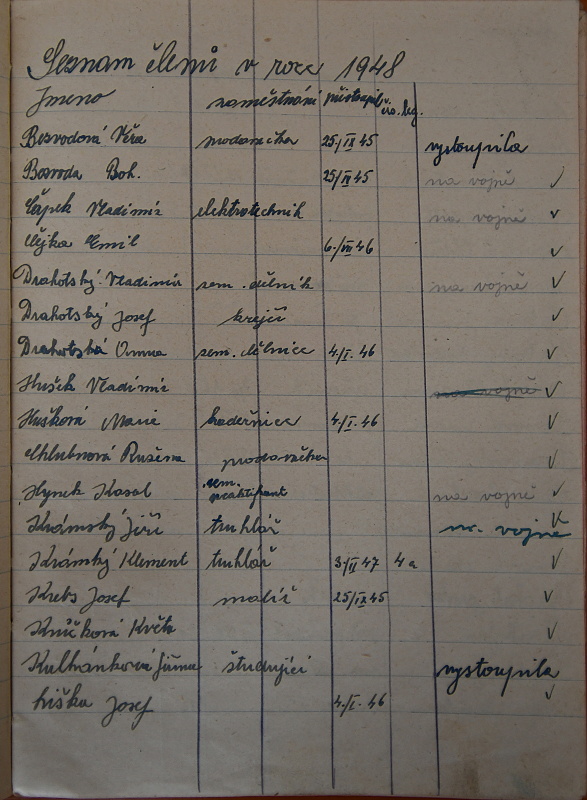 Seznam členů v roce 1948
Jmeno zaměstnání přistoupil čís. leg.
Bezvodová Věra prodavačka 25/IX 45 vystoupila
Boh. 25/IX 45 na vojně ✓
Čápek Vladimír elektrotechnik na vojně ✓
Čejka Emil 6./VII 46 ✓
Drahotský Vladimír zem. dělník na vojně ✓
Drahotský Josef krejčí ✓
Drahotská Anna zem. dělnice 4/I. 46 ✓
Hušek Vladimír na vojně ✓
Hušková Marie kadeřnice 4/I. 46 ✓
Chlubnová Růžena prodavačka ✓
Hynek Karel zem. praktikant na vojně ✓
Krámský Jiří truhlář na vojně ✓
Krámský Klement truhlář 3/II 47 4a ✓
Krebs Josef malíř 25/IX 45 ✓
Květa ✓
Kulhánková Jiřina študující vystoupila
Liška Josef 4./I. 46 ✓